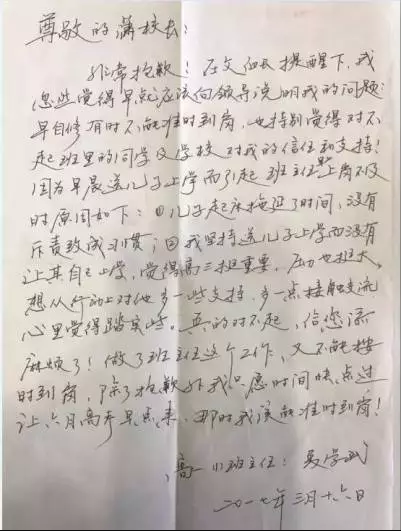 尊敬的蒲校长：
非常抱歉！在文 提醒下，我
忽然觉得早就应该向领导说明我的问题：
早自修有时不能准时到岗，也特别觉得对不
起班里的同学及学校对我的信任和支持！
因为早晨送儿子上学而引起班主任上岗不及
时原因如下：①儿子起床拖延了时间，没有
斥责致成习惯；②我坚持送儿子上学而没有
让其自己上学，觉得高三挺重要，压力也挺大，
想从行动上对他多一些支持，多一点接触交流
心里觉得踏实些。真的对不起，给您添
麻烦了！做了班主任这个工作，又不能按
时到岗，除了抱歉外我只愿时间快点过
让六月高考早点来，那时我该能准时到岗！
高一 班主任：吴学武
二〇一七年三月十六日